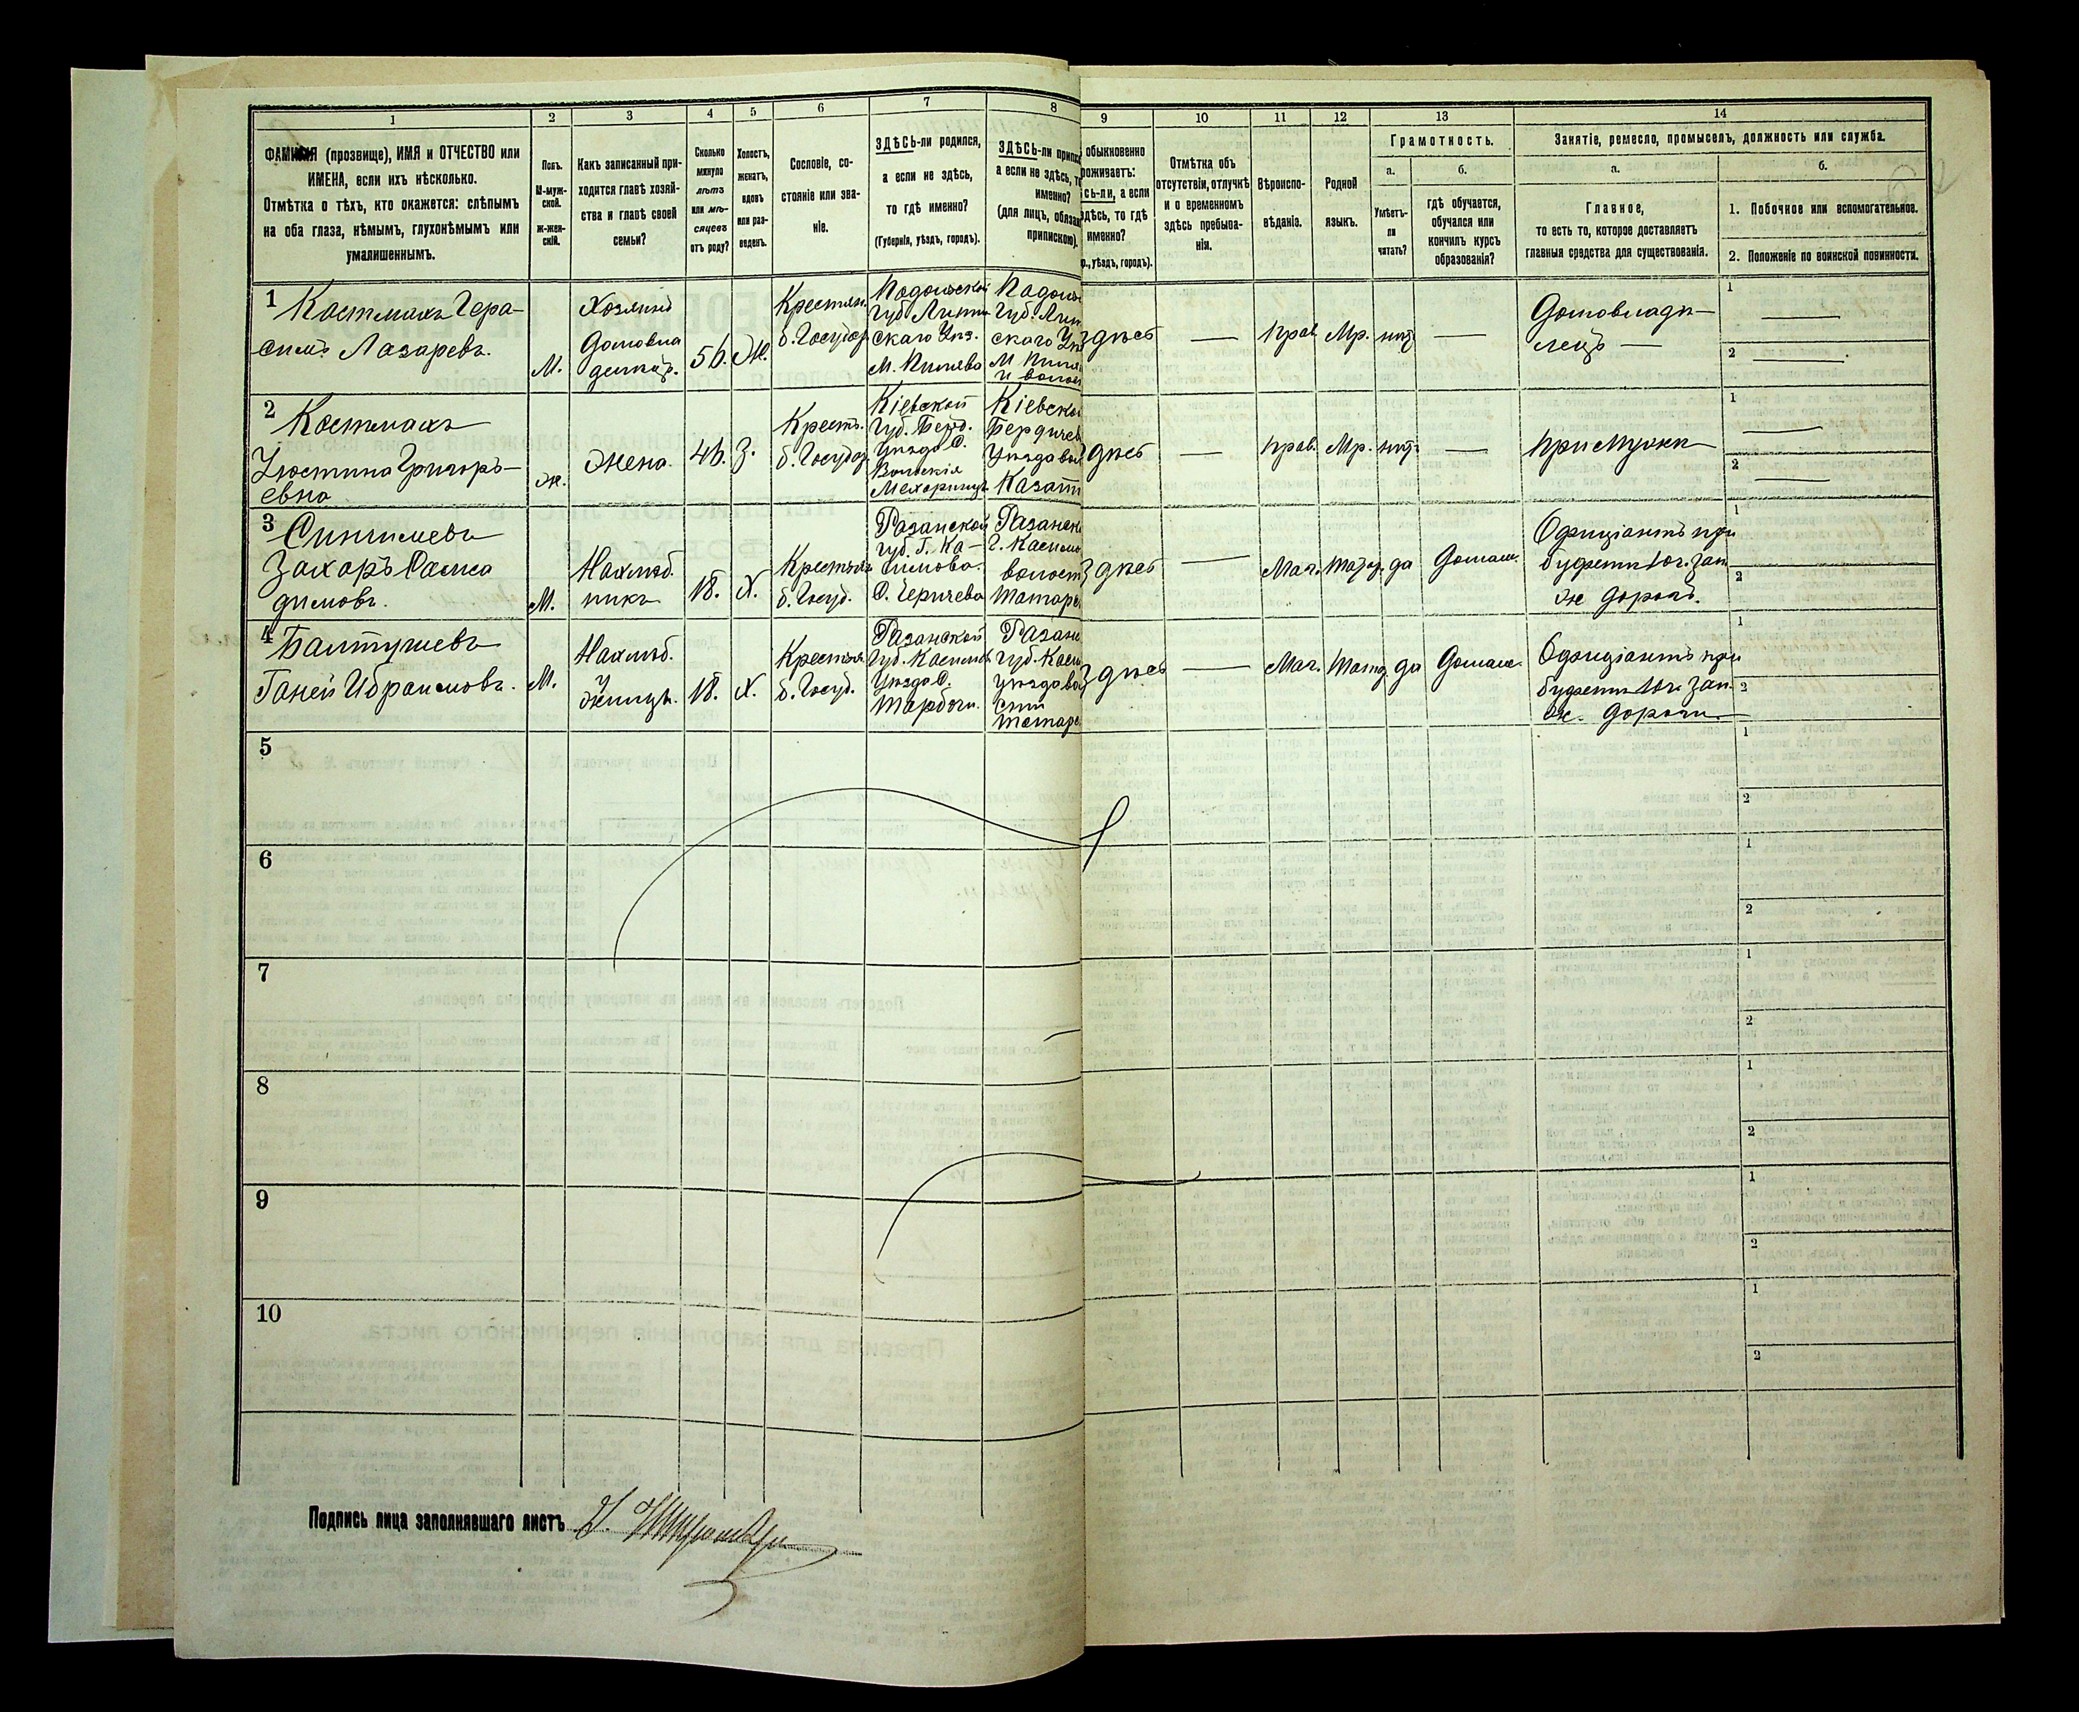 1 2 3 4 5 6 7 8 9 10 11 12 13 14
ФАМИЛІЯ (прозвище), ИМЯ и ОТЧЕСТВО или
ИМЕНА, если ихъ нѣсколько.
Отмѣтка о тѣхъ, кто окажется: слѣпымъ
на оба глаза, нѣмымъ, глухонѣмымъ или
умалишеннымъ.
Полъ.
М-муж-
ской.
ж-жен-
скій.
Какъ записанный при-
ходится главѣ хозяй-
ства и главѣ своей
семьи?
Сколько
минуло
лѣтъ
или мѣ-
сяцевъ
отъ роду?
Холостъ,
женатъ,
вдовъ
или раз-
веденъ.
Сословіе, со-
стояніе или зва-
ніе.
ЗДѢСЬ-ли родился,
а если не здѣсь,
то гдѣ именно?
(Губернія, уѣздъ, городъ).
ЗДѢСЬ-ли припис
а если не здѣсь, т
именно?
(для лицъ, обязан
припискою).
обыкновенно
роживаетъ:
сь-ли, а если
здѣсь, то гдѣ
именно?
р., уѣздъ, городъ).
Отмѣтка объ
отсутствіи, отлучкѣ
и о временномъ
здѣсь пребыва-
ніи.
Вѣроиспо-
вѣданіе.
Родной
языкъ.
Грамотность.
а.
Умѣетъ-
ли
читать?
б.
гдѣ обучается,
обучался или
кончилъ курсъ
образованія?
Занятіе, ремесло, промыселъ, должность или служба.
а.
Главное,
то есть то, которое доставляетъ
главныя средства для существованія.
б.
1. Побочное или вспомогательное.
2. Положеніе по воинской повинности.
1
Костмахъ Гера-
симъ Лазаревъ.
М.
Хозяинъ
Домовла
дѣлецъ.
56.
Ж.
Крестьян.
б. Государ
Подольской
губ. Литин
скаго Уѣз.
М. Пилява
Подольс
Губ. Лит
скаго Уѣ
М Пиля
и волос
здѣсь
—
Прав.
Мр.
нѣт
—
Домовладѣ-
лецъ —
1
2
2
Костмахъ
Устина Григорь-
евна
ж.
Жена.
46.
З.
Крест.
б. Государ
Кіевской
Губ. Берд.
Уѣзда С.
Махаринцы
Кіевско
Бердичев
Уѣзда вол
Казат
здѣсь
—
Прав.
Мр.
нѣт
—
При мужѣ
1
2
3
Захаръ
М.
Нахлѣб.
никъ
18.
Х.
Крестьян
б. Госуд.
Рязанской
губ. Г. Ка-
симова.
Рязанск
Г. Касимо
волост
Татарс
здѣсь
—
Маг.
да
Домаш.
Офиціантъ при
буфетѣ Юг. Зап
ж дорогѣ.
1
2
4
Балтушевъ
Ганей Ибраимовъ.
М.
Нахлѣб.
18.
Х.
Крестьян
б. Госуд.
Рязанской
Губ. Касимов
Уѣзда С.
Рязанс
губ. Каси
уѣзда во
Татарс
здѣсь
—
Маг.
Татар
да
Домаш.
Офиціантъ при
буфетѣ Юг. Зап.
ж. дороги.
1
2
5
1
2
6
1
2
7
1
2
8
1
2
9
1
2
10
1
2
Подпись лица заполнявшаго листъ